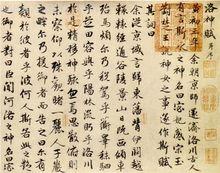 洛神賦
黃初三年余朝京師還濟洛川古人
有言斯水之神名曰宓妃感宋玉
神女之事遂作斯賦
其詞曰
余從京域言歸東藩背伊闕越
轘轅經通谷陵景山日既西傾車
殆馬煩爾乃稅駕乎蘅皋秣駟
乎芝田容與乎陽林流眄乎洛川
於是精移神駭忽焉思散俯則
未察仰以殊觀睹一麗人于巖
之畔爾乃援御者而告之曰爾有
覿於彼者乎彼何人斯若此之豔
也御者對曰臣聞河洛之神名曰宓